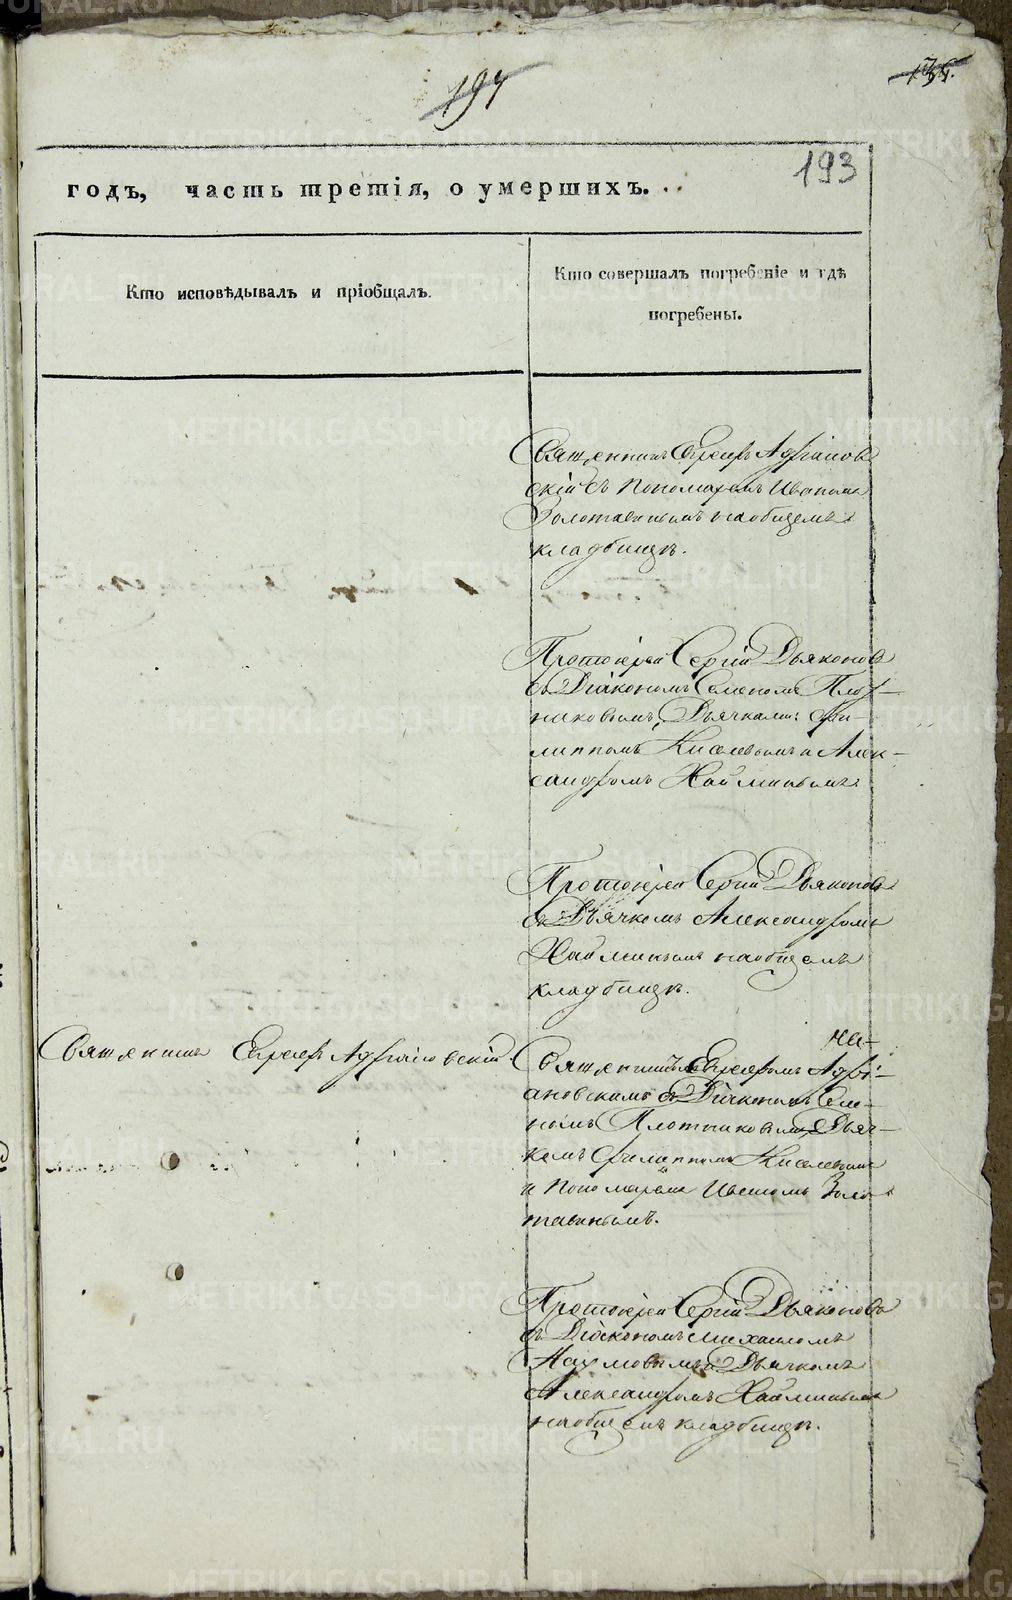 197
193
годъ, часть третія, о умершихъ.
Кто исповѣдывалъ и пріобщалъ.
Кто совершалъ погребеніе и гдѣ
погребены.
Священникъ Адріанов
скій съ Пономаремъ Иваномъ
Золотавинымъ на общемъ
кладбищѣ.
Протоіерей Сергій Дьяконовъ
съ Діакономъ Семеномъ Плот-
никовымъ, Дьячками: Фи-
липпомъ Киселевымъ и Алек-
сандромъ Хайминымъ
Протоіерей Сергій Дьяконовъ
съ Дьячкомъ Александромъ
Хайминымъ на общемъ
кладбищѣ.
Священникъ Адріановскій
Священникомъ Адрі-
ановскимъ съ Діакономъ Семе-
номъ Плотниковымъ, Дьяч-
комъ Филиппомъ Киселевымъ
и Пономаремъ Иваномъ Золо-
тавинымъ.
Протоіерей Сергій Дьяконовъ
съ Діакономъ Михаиломъ
Наумовымъ и Дьячкомъ
Александромъ Хайминымъ
на общемъ кладбищѣ.
METRIKI.GASO-URAL.RU